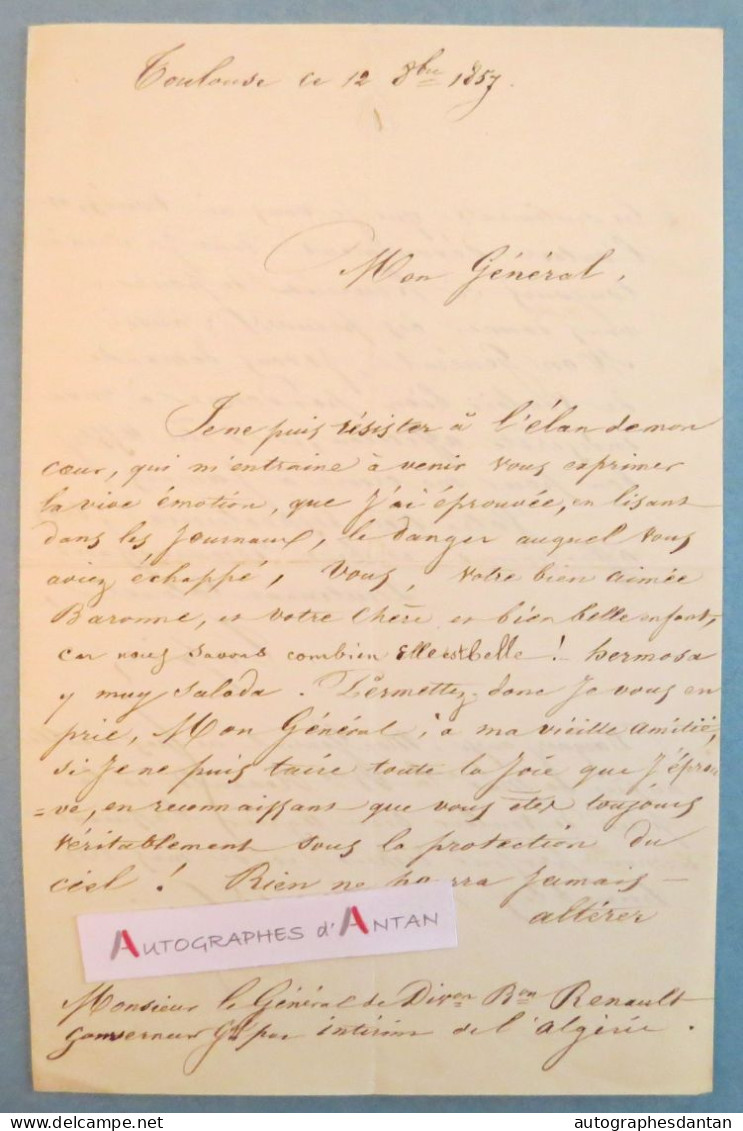 Toulouse ce 12 8bre 1857.
Mon Général,
Je ne puis résister à l'élan de mon
cœur, qui m'entraine à venir vous exprimer
la vive émotion, que j'ai éprouvée, en lisant
dans les journaux, le danger auquel vous
aviez échappé, vous, votre bien aimée
Baronne, et votre chère et bien belle enfant,
car nous savons combien elle est belle ! hermosa
y muy salada. Permettez donc je vous en
prie, Mon Général, à ma vieille amitié,
si je ne puis taire toute la joie que j'éprou
=ve, en reconnaissant que vous êtes toujours
véritablement sous la protection du
ciel ! Rien ne jamais
altérer
AUTOGRAPHES d'ANTAN
Monsieur le Général de Divon Bon Renault
Gouverneur Gal par intérim de l'algérie.
autographesdantan